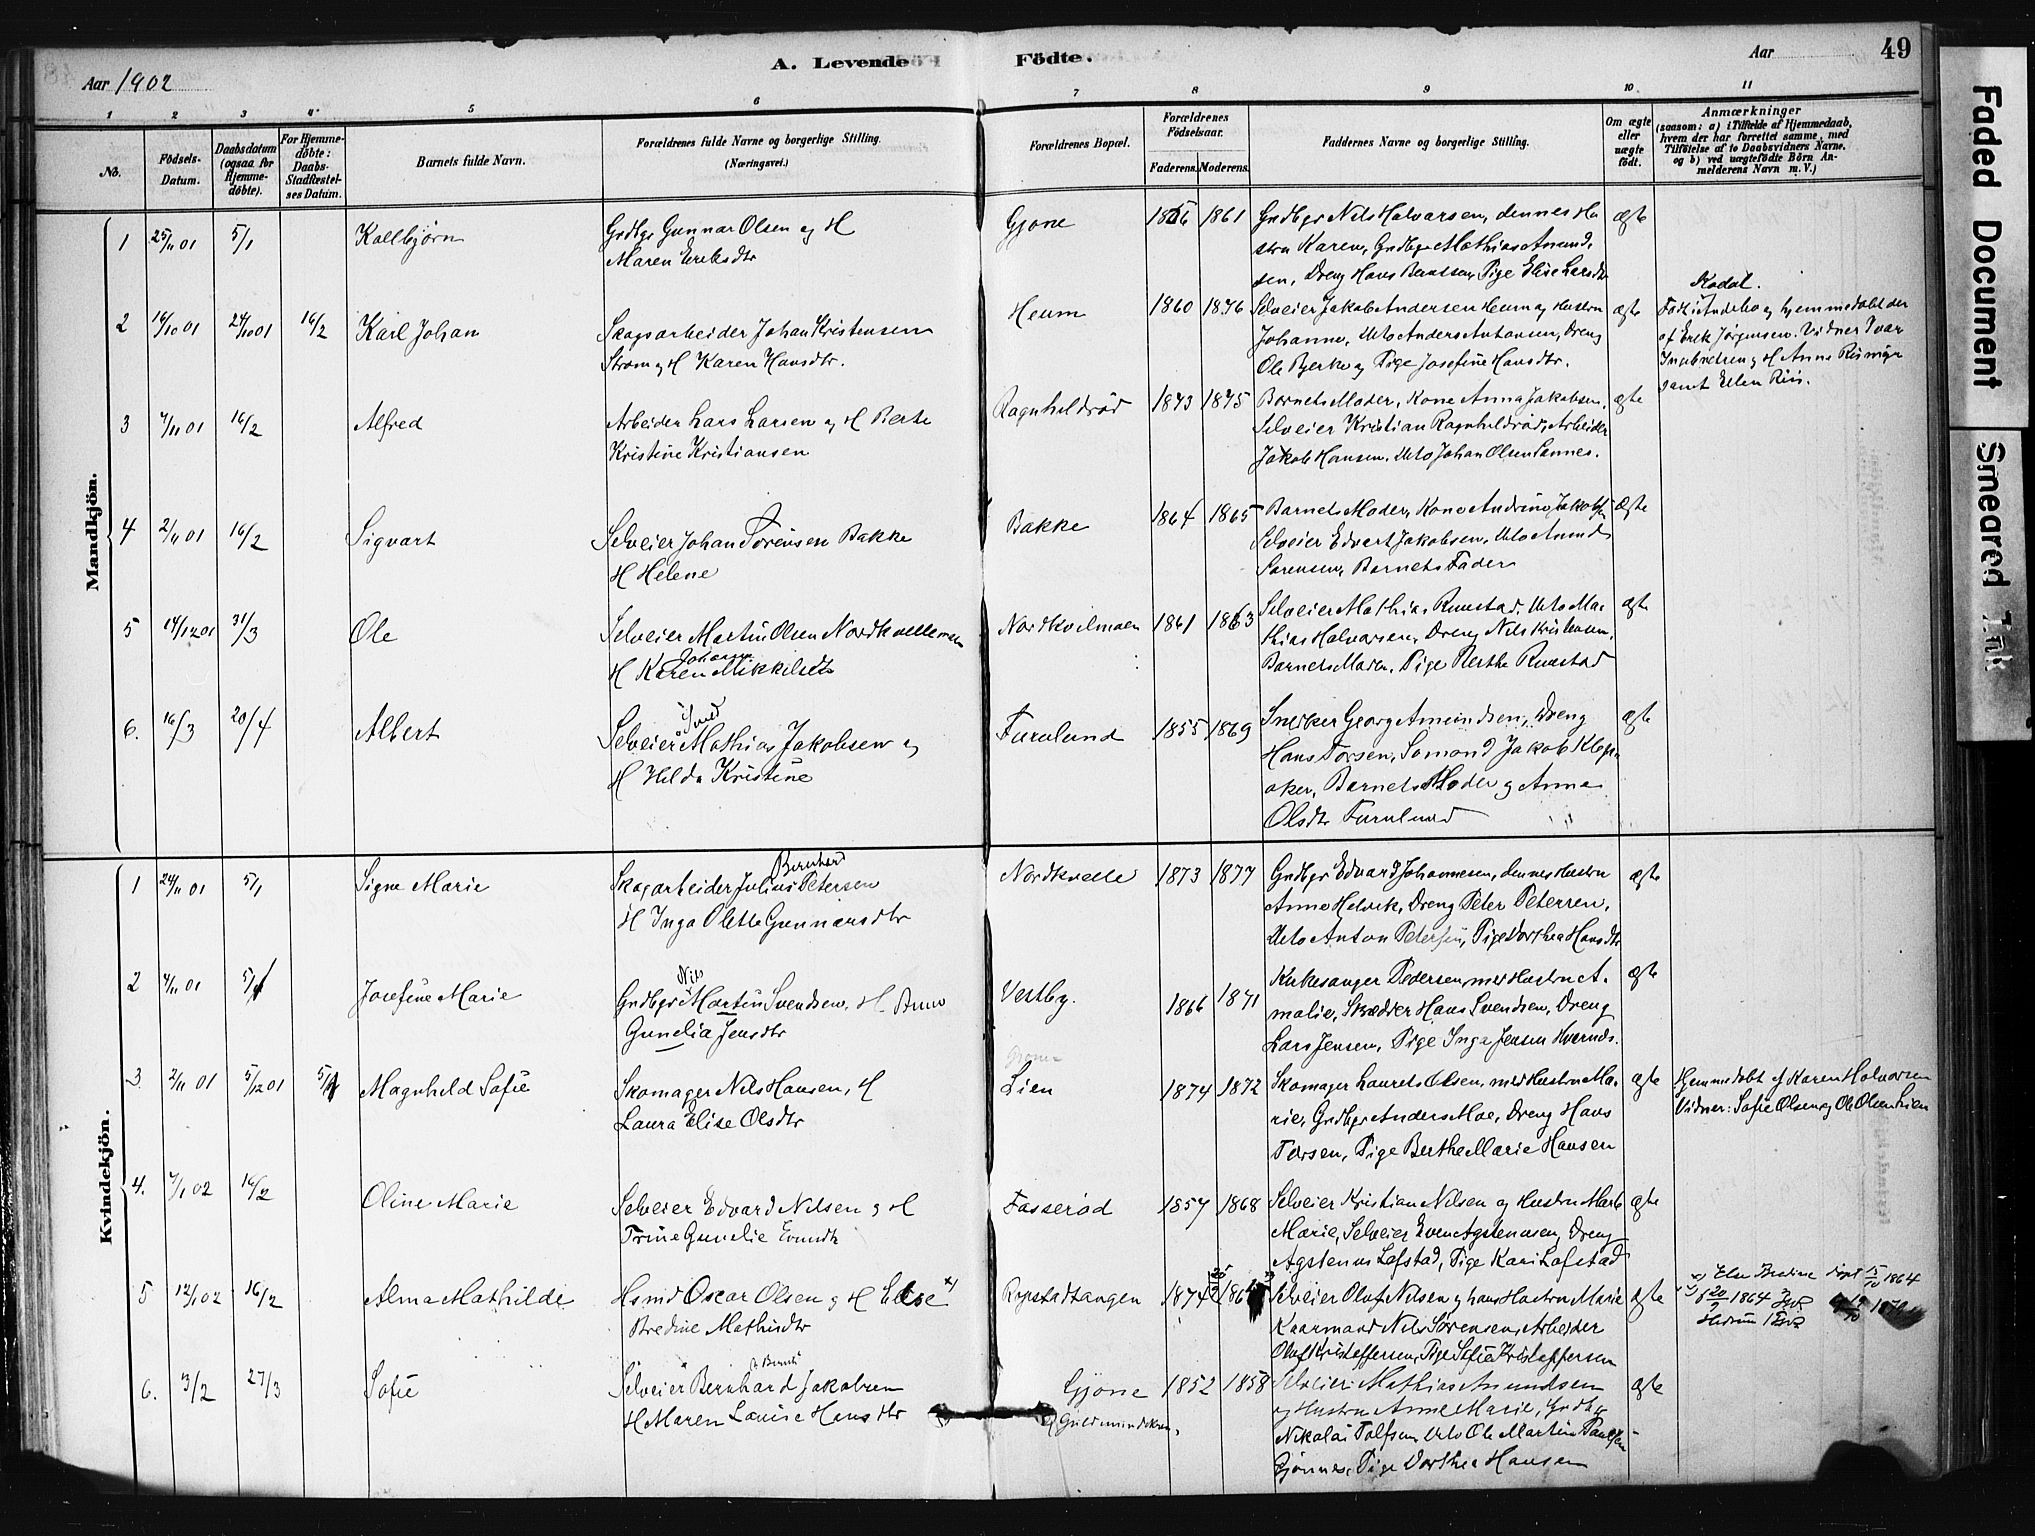 Aar 1902
A. Levende Födte.
Aar
49
1 2 3 4 5 6 7 8 9 10 11
No.
Födsels-Datum.
Daabsdatum (ogsaa for Hjemmedöbte).
For Hjemmedöbte: Daabs-Stadfæstelses Datum.
Barnets fulde Navn.
Forældrenes fulde Navne og borgerlige Stilling. (Næringsvei.)
Forældrenes Bopæl.
Forældrenes Födselsaar.
Faderens. Moderens.
Faddernes Navne og borgerlige Stilling.
Om ægte eller uægte födt.
Anmærkninger
(saasom: a) i Tilfælde af Hjemmedaab, hvem der har forrettet samme, med Tilföielse af to Daabsvidners Navne, og b) ved uægtefödte Börn Anmelderens Navn m. V.)
Mandkjön.
1 25/11 01 5/1 Kolbjørn
Grdbgr Gunnar Olsen og H
Maren Eriksdtr
Gjone 1861
Grdbgr Nils Halvorsen, dennes Hu
stru Karen, Grdbgr Mathias Amund
sen, Dreng Hans Berntsen, Pige Elise Larsdtr
ægte
2 16/10 01 24/10 01 16/2 Karl Johan
Skogarbeider Johan Kristensen
Strøm og H Karen Hansdtr.
Heum 1860 1876
Selveier Jakob Andersen Heum og Hustru
Johanne, Do Anders Antonsen, Dreng
Ole Bjerke og Pige Josefine Hansdtr.
ægte
Kodal.
Født i Andebo og hjemmedøbt der
af Erik Jørgensen. Vidner Ivar
og H Anne
samt Ellen Riis.
3 7/11 01 16/2 Alfred
Arbeider Lars Larsen og H Berte
Kristine Kristiansen
Ragnhildrød 1873 1875
Barnets Moder, Kone Anna Jakobsen,
Selveier Kristian Ragnhildrød, Arbeider
Jakob Hansen, Do Johan Olsen Sannes.
ægte
4 2/11 01 16/2 Sigvart
Selveier Johan Sørensen Bakke
H Helene
Bakke 1864 1865
Barnets Moder, Kone Andrine Jakobs
Selveier Edvart Jakobsen, Do Amund
Sørensen, Barnets Fader
ægte
5 14/12 01 31/3 Ole
Selveier Martin Olsen Nordkvellemoen
Johanne
H Karen Mikkelsdtr
Nordkvelmoen 1861 1863
Selveier Mathias Ruestad, Do Ma
thias Halvorsen, Dreng Nils Kristensen,
Barnets Moder, Pige Berthe Ruestad
ægte
6. 16/3 20/4 Albert
Selveier Mathias Jakobsen og
H Hilda Kristine
Furulund 1855 1869
Snedker Georg Amundsen, Dreng
Hans Torsen, Sømand Jakob Klep
aker, Barnets Moder og Anna
Olsdtr Furulund
ægte
Kvindekjön.
1 24/11 01 5/1 Signe Marie
Bernhard
Skogarbeider Julius Petersen
H Inga Olette Gunnarsdtr
Nordkvelle 1873 1877
Grdbgr Edvard Johannesen, dennes Hustru
Anne Helvik, Dreng Peter Petersen,
Do Anton Petersen, Pige Dorthea Hansdtr
ægte
2 7/11 01 5/1 Josefine Marie
Nils
Grdbgr Martin Svendsen, H Anne
Gunelia Jensdtr
Vestby. 1866 1871
Kirkesanger Pedersen, med Hustru A
malie, Skrædder Hans Svendsen, Dreng
Lars Jensen, Pige Inga Jensen Hvarnes.
ægte
3. 2/11 01 5/12 01 5/1 Magnhild Sofie
Skomager Nils Hansen, H
Laura Elise Olsdtr
Lien 1874 1872
Skomager Laurets Olsen, med Hustru Ma
rie, Grdbgr Anders Moe, Dreng Hans
Torsen, Pige Berthe Marie Hansen
ægte
Hjemmedøbt af Karen Halvorsen
Vidner: Sofie Olsen og Ole Olsen Lien
4. 7/1 02 16/2 Oline Marie
Selveier Edvard Nilsen og H
Trine Gunelie Evensdtr
Fosserød 1857 1868
Selveier Kristian Nilsen og Hustru Marte
Marie, Selveier Even Agstensen, Dreng
Agstenus Løfstad, Pige Kari Løfstad
ægte
5 12/1 02 16/2 Alma Mathilde
Hsmd Oscar Olsen og H Else x)
Bredine Mathisdtr
Røpstadtangen 1874
Selveier Oluf Nilsen og hans Hustru Marie
Kaarmand Nils Sørensen, Arbeider
Oluf Kristoffersen, Pige Sofie Kristoffersen
ægte
x) Else Bredine døpt 1864
20/9 1864
6. 13/2 27/3 Sofie
Selveier Bernhard Jakobsen
H Maren Louise Hansdtr
Gjone 1852 1858
Selveier Mathias Amundsen
og Hustru Anne Marie, Grdbgr
Nikolai Tolfsen, Do Ole Martin Paulsen
Gjønnes, Pige Dorthea Hansen
ægte
Faded Document
Smeared Ink